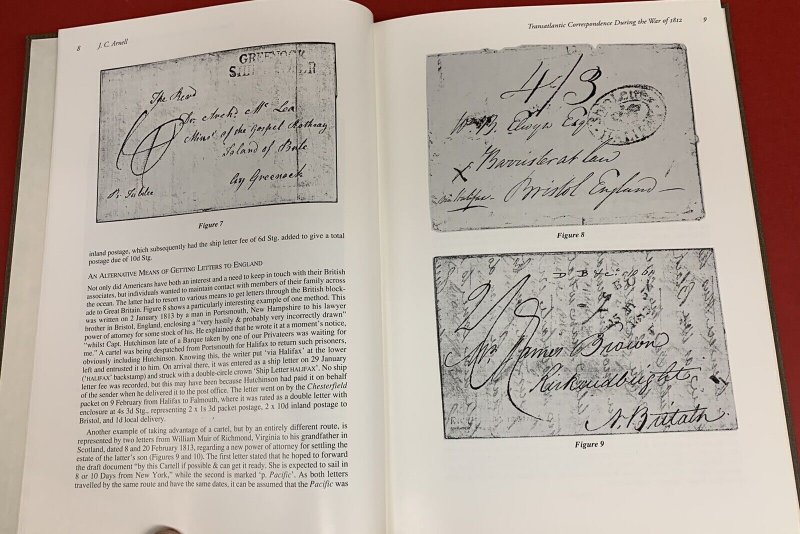 8 J. C. Arnell
GREENOCK
SHIP LETTER
The Revd
Dr. Archd. Mc Lea
Minr. of the Gospel Rothsay
Island of Bute
By Greenock
Pr. Jubilee
Figure 7
inland postage, which subsequently had the ship letter fee of 6d Stg. added to give a total
postage due of 10d Stg.
AN ALTERNATIVE MEANS OF GETTING LETTERS TO ENGLAND
Not only did Americans have both an interest and a need to keep in touch with their British
associates, but individuals wanted to maintain contact with members of their family across
the ocean. The latter had to resort to various means to get letters through the British block-
ade to Great Britain. Figure 8 shows a particularly interesting example of one method. This
was written on 2 January 1813 by a man in Portsmouth, New Hampshire to his lawyer
brother in Bristol, England, enclosing a “very hastily & probably very incorrectly drawn”
power of attorney for some stock of his. He explained that he wrote it at a moment's notice,
“whilst Capt. Hutchinson late of a Barque taken by one of our Privateers was waiting for
me.” A cartel was being despatched from Portsmouth for Halifax to return such prisoners,
obviously including Hutchinson. Knowing this, the writer put ‘via Halifax’ at the lower
left and entrusted it to him. On arrival there, it was entered as a ship letter on 29 January
(‘HALIFAX’ backstamp) and struck with a double-circle crown ‘Ship Letter HALIFAX’. No ship
letter fee was recorded, but this may have been because Hutchinson had paid it on behalf
of the sender when he delivered it to the post office. The letter went by the Chesterfield
packet on 9 February from Halifax to Falmouth, where it was rated as a double letter with
enclosure at 4s 3d Stg., representing 2 x 1s 3d packet postage, 2 x 10d inland postage to
Bristol, and 1d local delivery.
Another example of taking advantage of a cartel, but by an entirely different route, is
represented by two letters from William Muir of Richmond, Virginia to his grandfather in
Scotland, dated 8 and 20 February 1813, regarding a new power of attorney for settling the
estate of the latter's son (Figures 9 and 10). The first letter stated that he hoped to forward
the draft document “by this Cartel if possible & can get it ready. She is expected to sail in
8 or 10 Days from New York,” while the second is marked ‘p. Pacific’. As both letters
travelled by the same route and have the same dates, it can be assumed that the Pacific was
Transatlantic Correspondence During the War of 1812 9
4/3
Elwyn Esqr
Barrister at law
via Halifax
Bristol England
Figure 8
2/
Mr. James Brown
Kirkcudbright
N. Britain
Figure 9